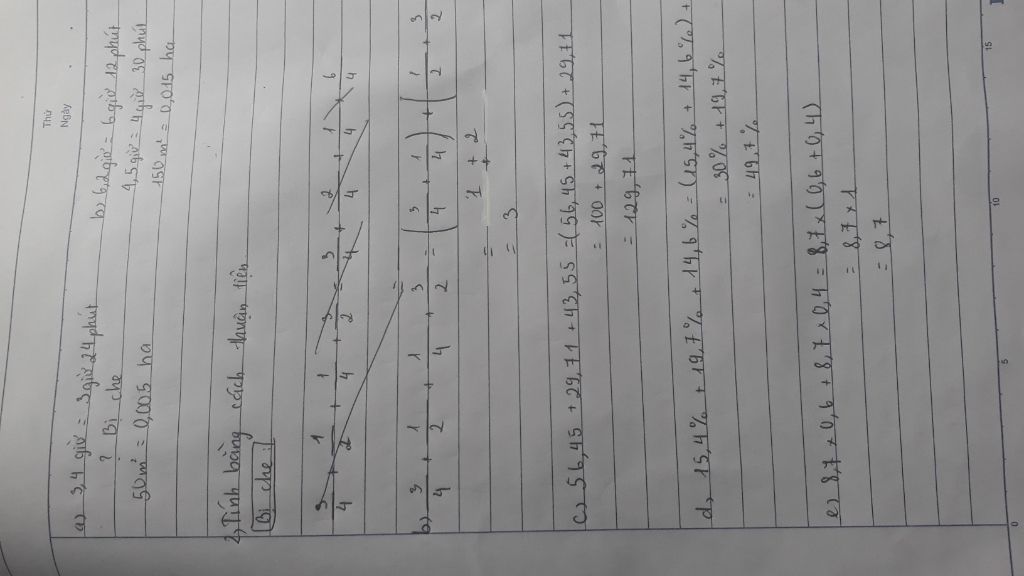 Thứ
Ngày
a) 3,4 giờ = 3 giờ 24 phút b) 6,2 giờ = 6 giờ 12 phút
? Bị che 4,5 giờ = 4 giờ 30 phút
50 m² = 0,005 ha 150 m² = 0,015 ha
2, Tính bằng cách thuận tiện
Bị che :|
3/4 + 1/2 + 1/4 + 3/2 = 3/4 + 2/4 + 1/4 + 6/4
=
b) 3/4 + 1/2 + 1/4 + 3/2 = (3/4 + 1/4) + (1/2 + 3/2
= 1 + 2
= 3
c) 56,45 + 29,71 + 43,55 = (56,45 + 43,55) + 29,71
= 100 + 29,71
= 129,71
d) 15,4% + 19,7% + 14,6% = (15,4% + 14,6%) +
= 30% + 19,7%
= 49,7%
e) 8,7 x 0,6 + 8,7 x 0,4 = 8,7 x (0,6 + 0,4)
= 8,7 x 1
= 8,7
0 5 10 15